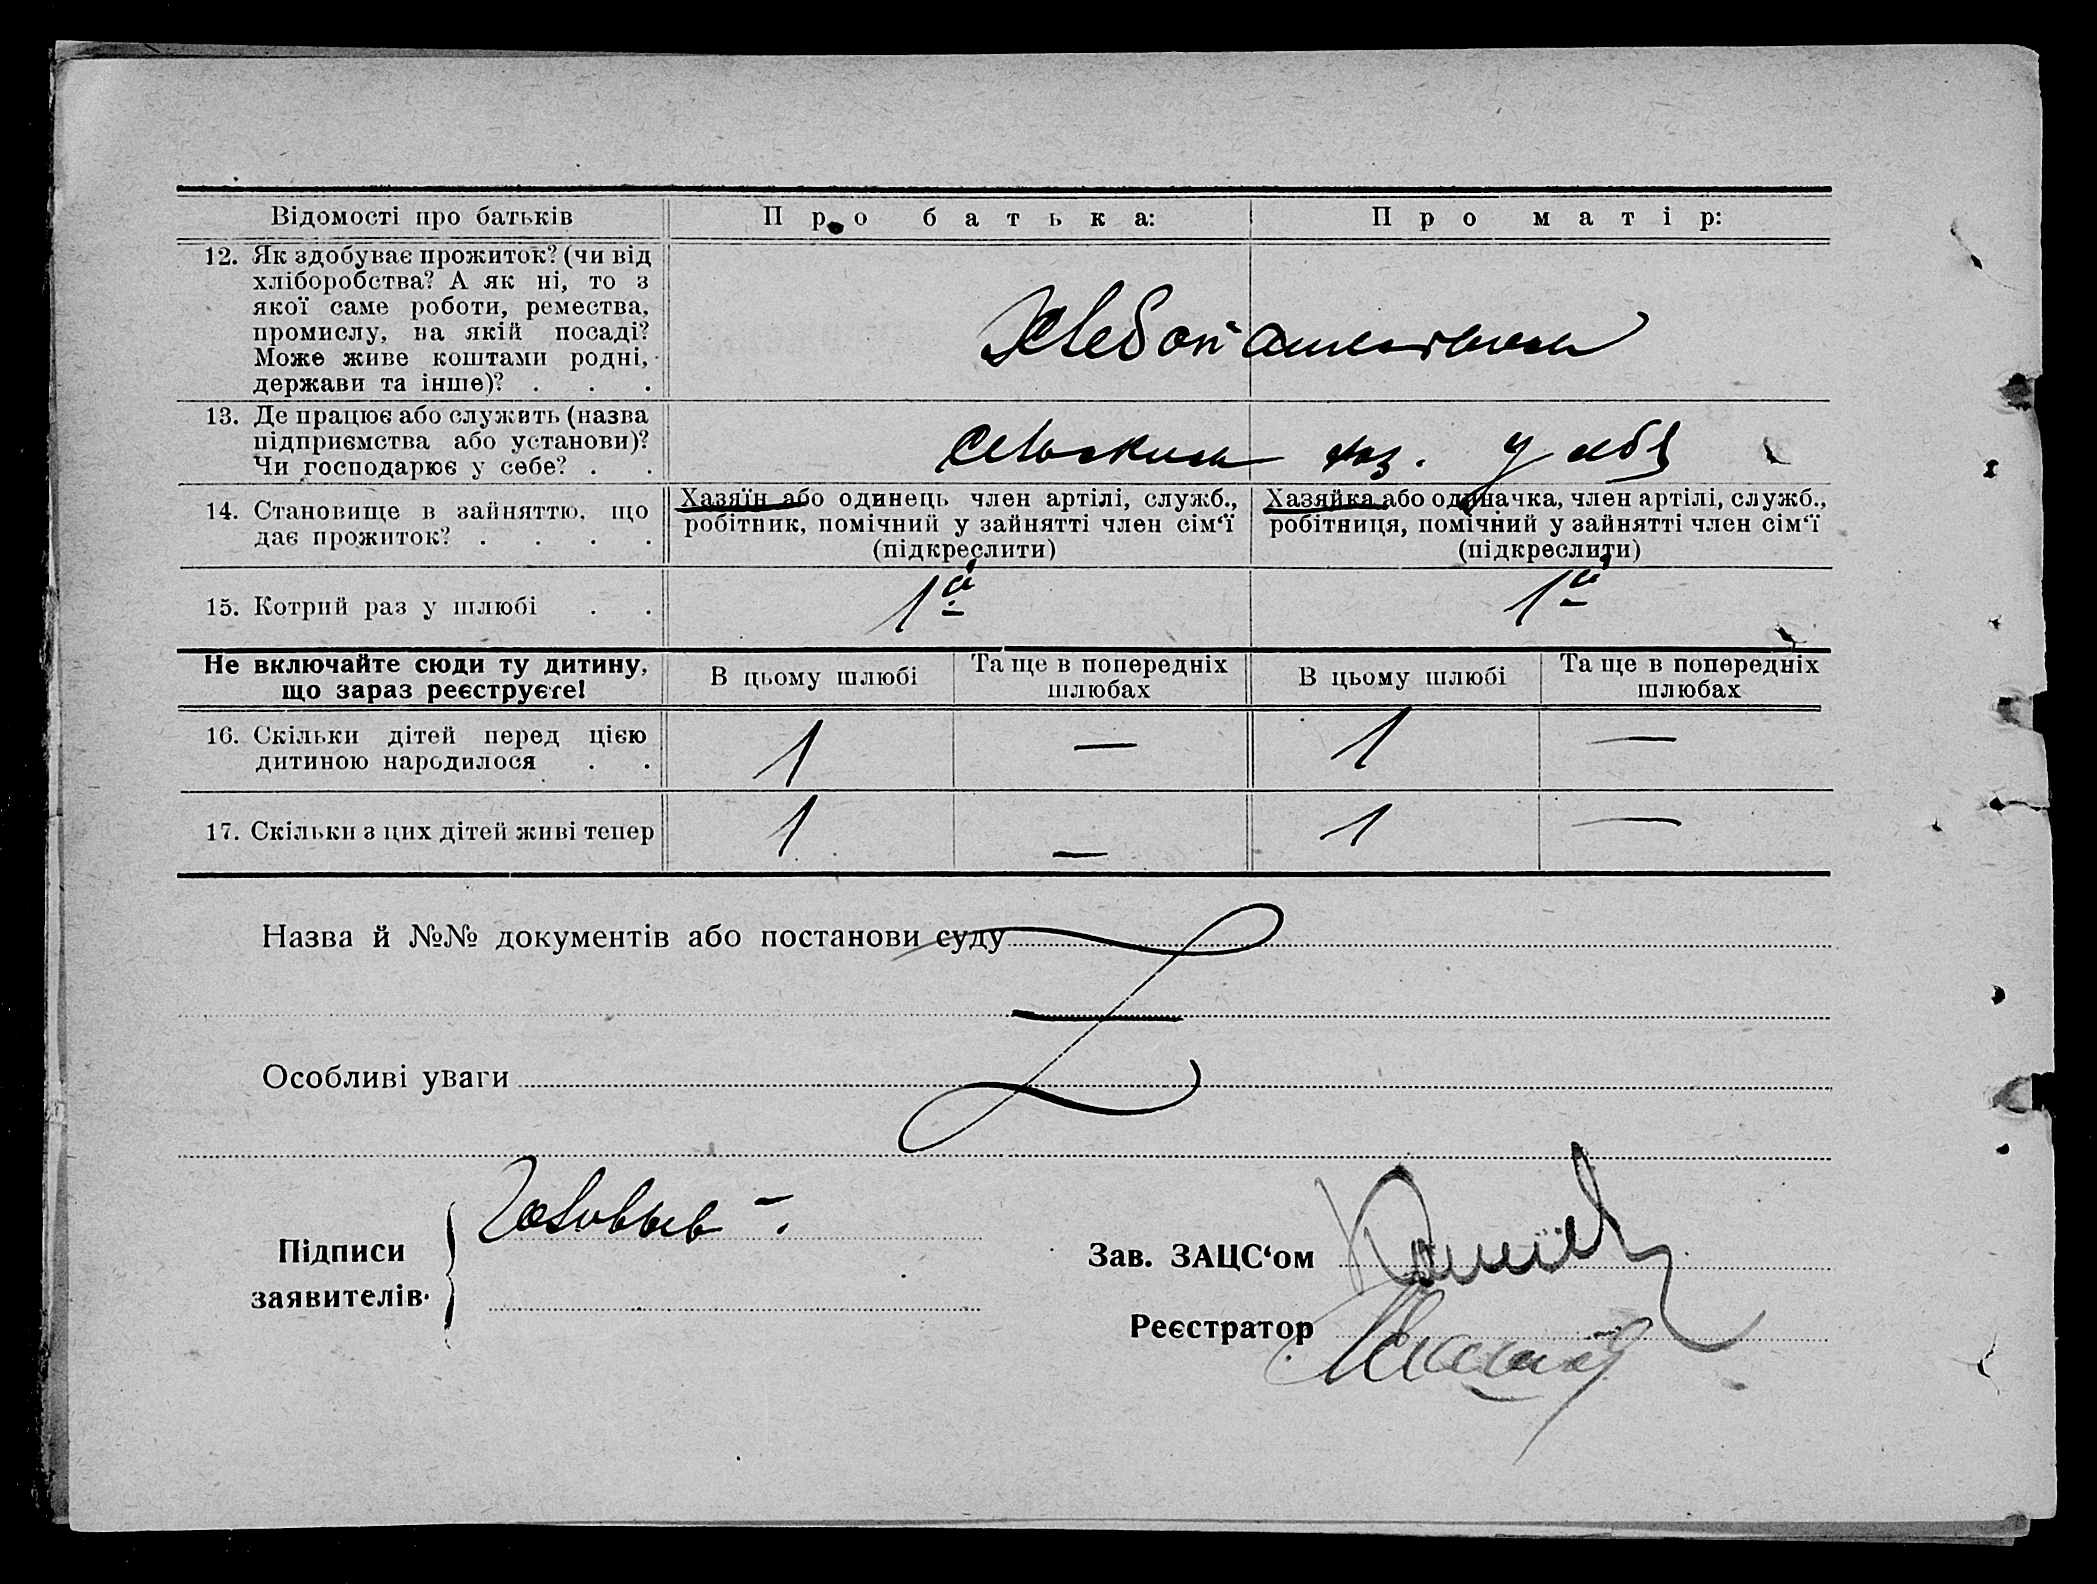 Відомості про батьків
Про батька:
Про матір:
12. Як здобуває прожиток? (чи від
хліборобства? А як ні, то з
якої саме роботи, ремества,
промислу, на якій посаді?
Може живе коштами родні,
держави та інше)? . . .
13. Де працює або служить (назва
підприємства або установи)?
Чи господарює у себе? . .
у себя
14. Становище в зайняттю, що
дає прожиток? . . . .
Хазяїн або одинець член артілі, служб.,
робітник, помічний у зайнятті член сім‘ї
(підкреслити)
Хазяйка або одиначка, член артілі, служб.,
робітниця, помічний у зайнятті член сім‘ї
(підкреслити)
15. Котрий раз у шлюбі . .
1й
1й
Не включайте сюди ту дитину,
що зараз реєструєте!
В цьому шлюбі
Та ще в попередніх
шлюбах
В цьому шлюбі
Та ще в попередніх
шлюбах
16. Скільки дітей перед цією
дитиною народилося . .
1
—
1
—
17. Скільки з цих дітей живі тепер
1
—
1
—
Назва й №№ документів або постанови суду
Особливі уваги
Підписи
заявителів
Зав. ЗАЦС‘ом
Реєстратор